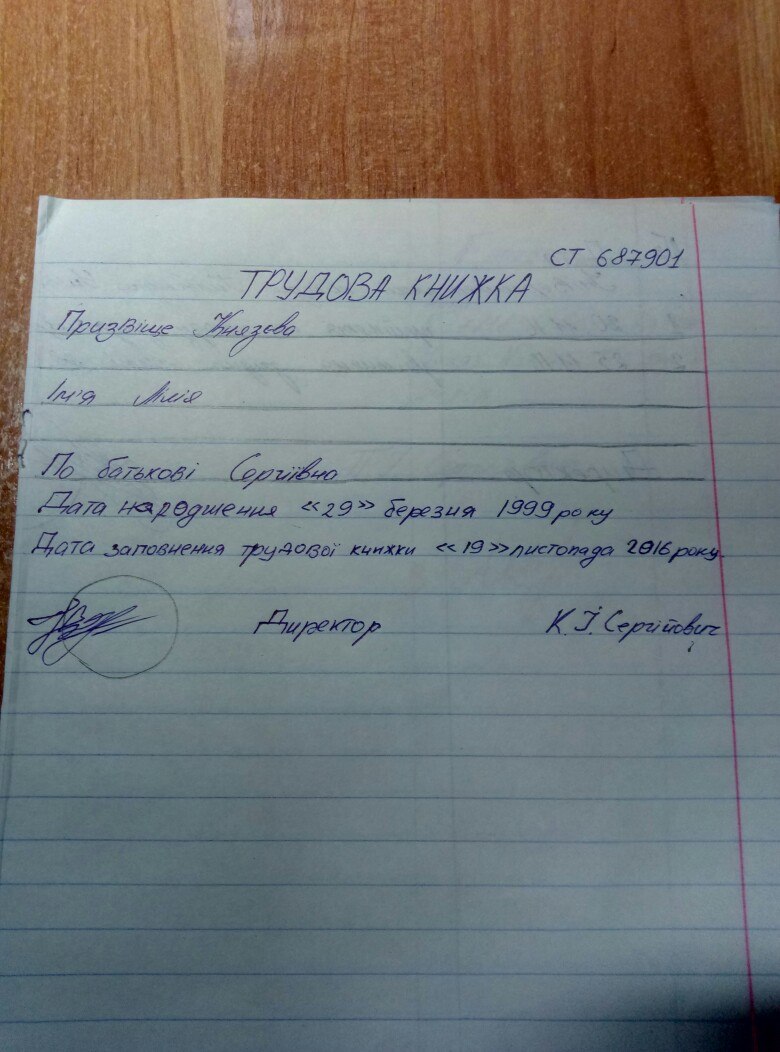 СТ 687901
ТРУДОВА КНИЖКА
Призвіще Князєва
Ім'я Лілія
По батькові Сергіївна
Дата народження «29» березня 1999 року
Дата заповнення трудової книжки «19» листопада 2016 року.
Директор К.І. Сергійович